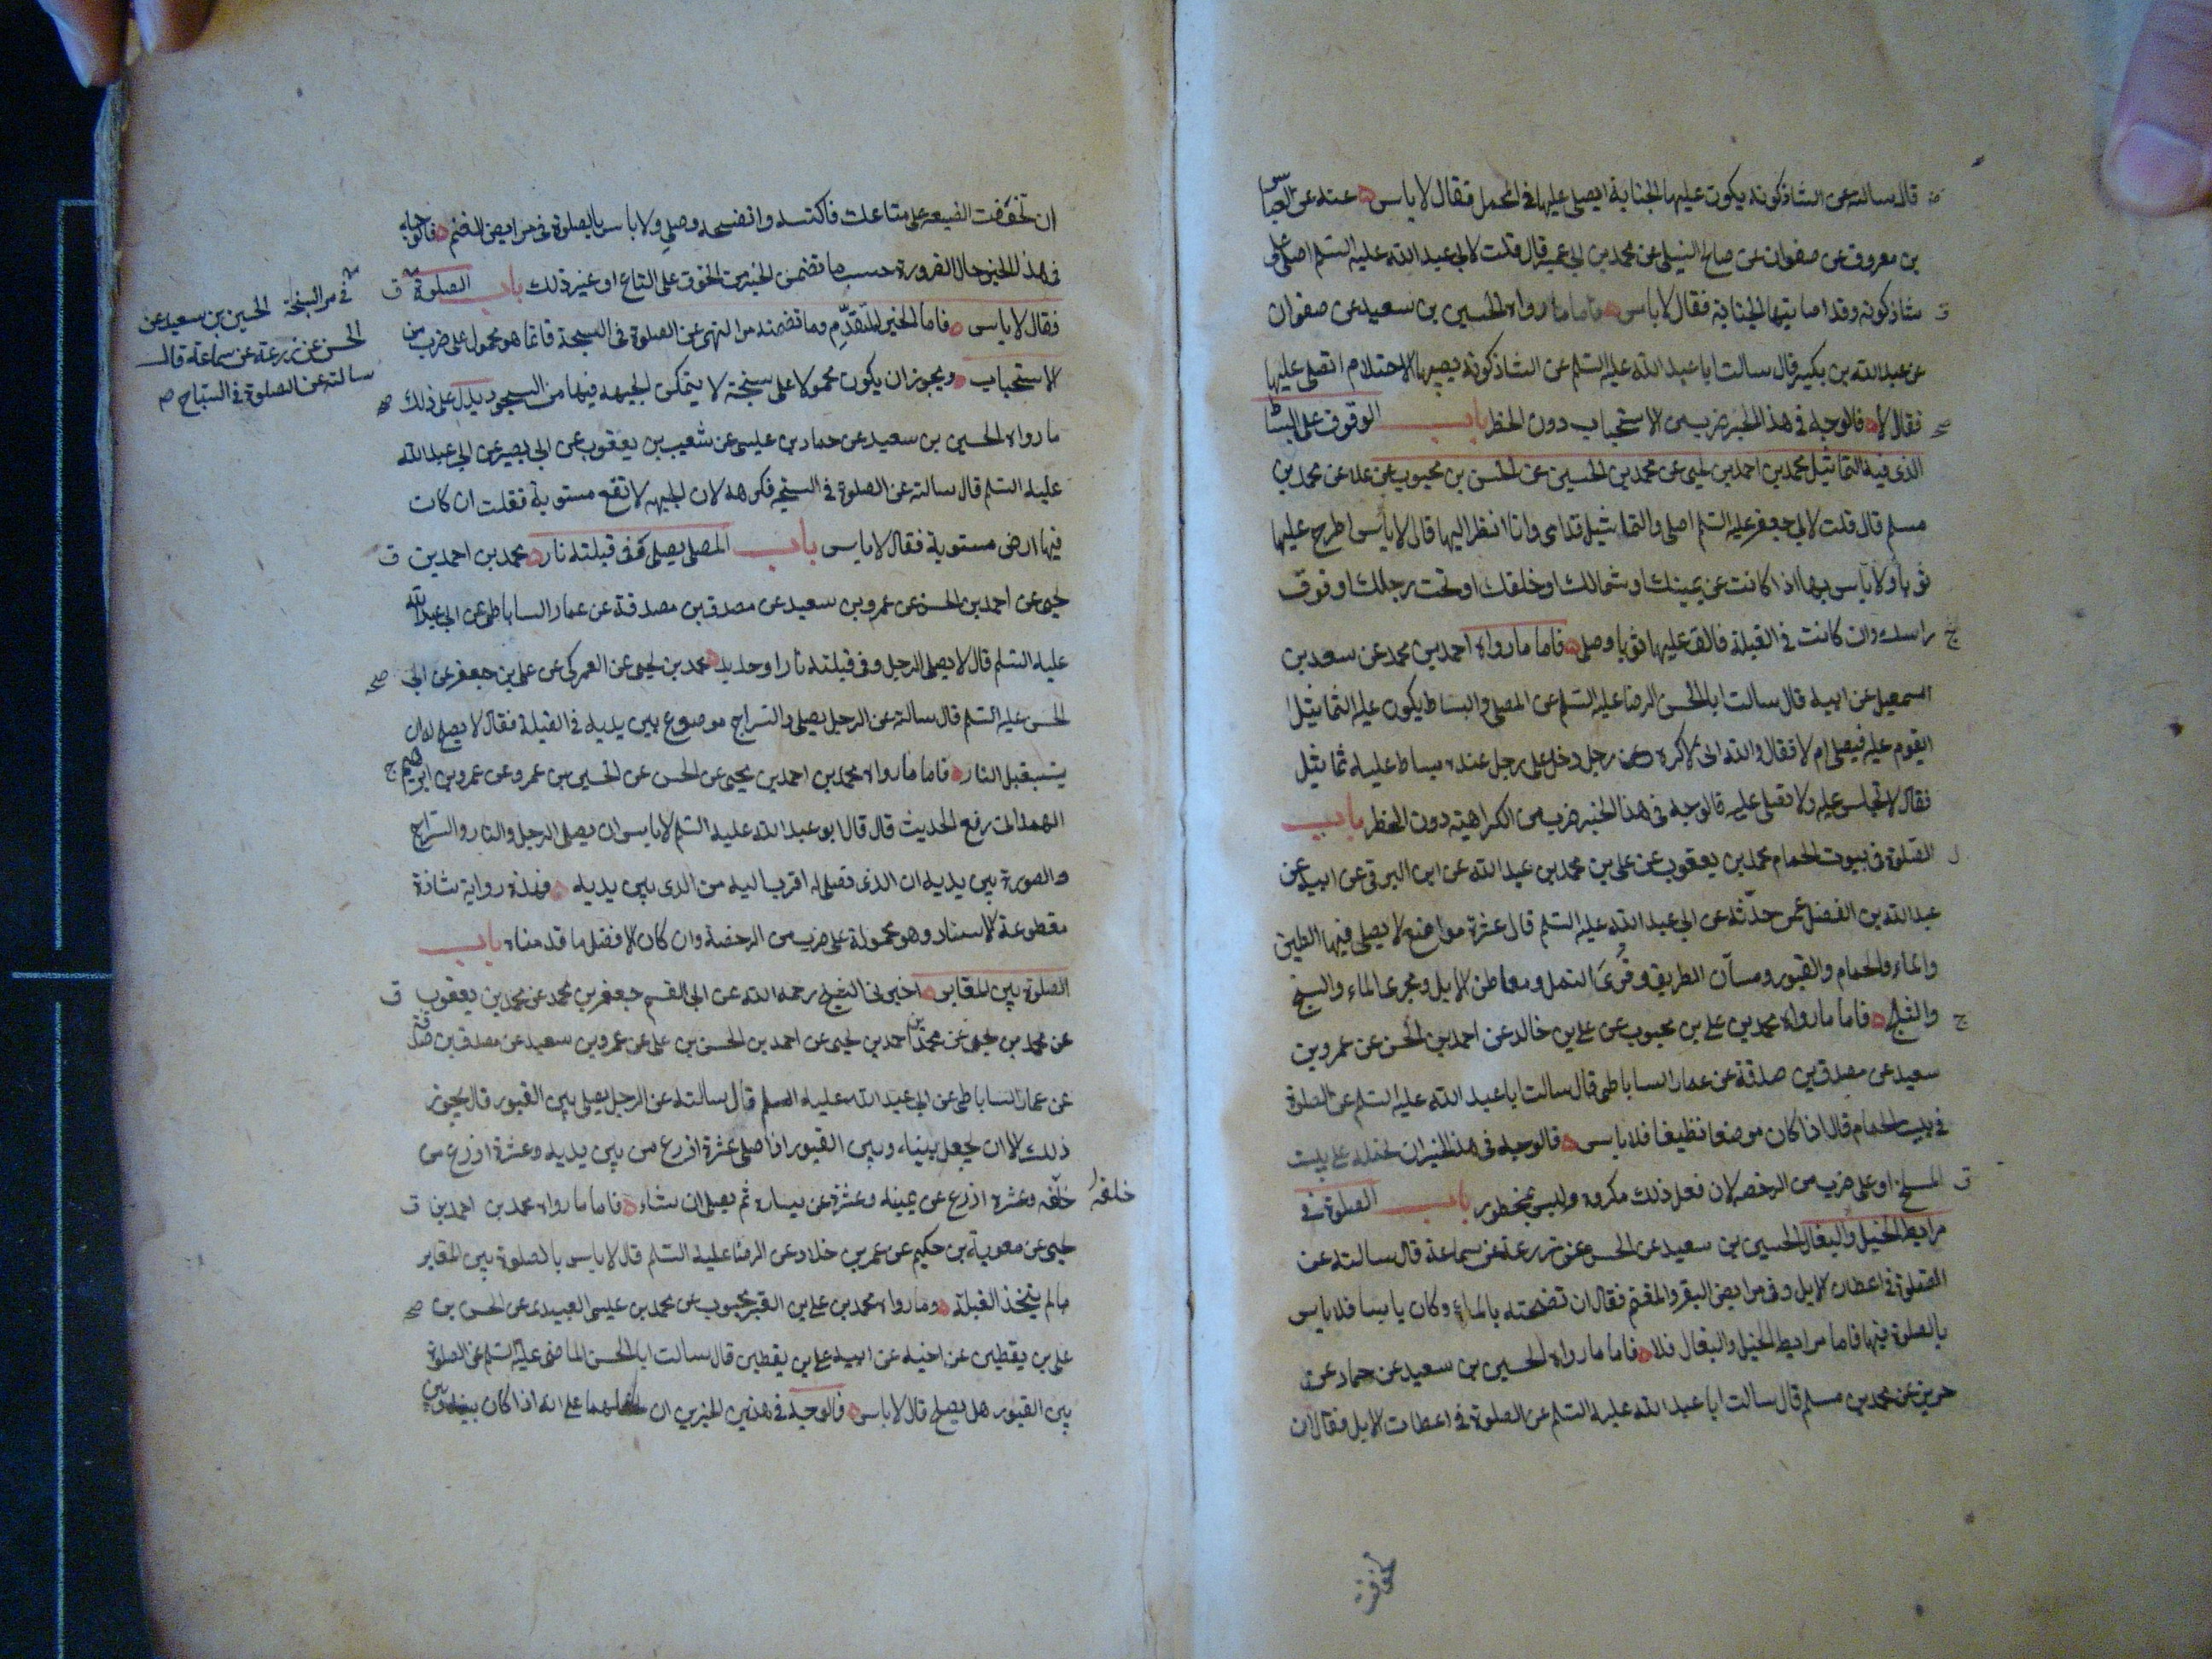 قال سالته عن الشاذكونه يكون عليها الجنابة ايصلى عليها فى المحمل فقال لا باس عنه عن العباس
بن معروف عن صفوان عن صالح النيلى عن محمد بن ابى عمير قال قلت لابى عبد الله عليه السلم اصلى على
شاذكونه وقد اصابتها الجنابة فقال لا باس فاما ما رواه الحسين بن سعيد عن صفوان
عن عبد الله بن بكير قال سالت ابا عبد الله عليه السلم عن الشاذكونة يصيبها الاحتلام اتصلى عليها
فقال لا فالوجه فى هذا الخبر ضرب من الاستحباب دون الحظر باب الوقوف على البساط
الذى فيه التماثيل محمد بن احمد بن يحيى عن محمد بن الحسين عن الحسن بن محبوب عن علا عن محمد بن
مسلم قال قلت لابى جعفر عليه السلم اصلى والتماثيل قدامى وانا انظر اليها قال لا باس اطرح عليها
ثوبا ولا باس بها اذا كانت عن يمينك او شمالك او خلفك او تحت رجلك او فوق
راسك وان كانت فى القبلة فالق عليها ثوبا وصلى فاما ما رواه احمد بن محمد عن سعد بن
اسمعيل عن ابيه قال سالت ابا الحسن الرضا عليه السلم عن المصلى والبساط يكون عليه التماثيل
ايقوم عليه فيصلى ام لا فقال والله انى لاكره وعن رجل دخل على رجل عنده بساط عليه تماثيل
فقال لا تجلس عليه ولا تصلى عليه فالوجه فى هذا الخبر ضرب من الكراهية دون الحظر باب
الصلوة فى بيوت الحمام محمد بن يعقوب عن على بن محمد بن عبد الله عن ابن البرقى عن ابيه عن
عبد الله بن الفضل عمن حدّثه عن ابى عبد الله عليه السلم قال عشرة مواضع لا يصلى فيها الطين
والماء والحمام والقبور ومسان الطريق وقرى النمل ومعاطن الابل ومجرى الماء والسبخ
والثلج فاما ما رواه محمد بن على بن محبوب عن على بن خالد عن احمد بن الحسن عن عمرو بن
سعيد عن مصدق بن صدقة عن عمار الساباطى قال سالت ابا عبد الله عليه السلم عن الصلوة
فى بيت الحمام قال اذا كان موضعا نظيفا فلا باس فالوجه فى هذا الخبر ان نحمله على بيت
المسلخ او على ضرب من الرخصه لان فعل ذلك مكروه وليس بمحظور باب الصلوة فى
مرابط الخيل والبغال الحسين بن سعيد عن الحسن عن زرعة عن سماعة قال سالته عن
الصلوة فى اعطان الابل وفى مرابض البقر والغنم فقال ان نضحته بالماء وكان يابسا فلا باس
بالصلوة فيها فاما مرابط الخيل والبغال فلا فاما ما رواه الحسين بن سعيد عن حماد عن
حريز عن محمد بن مسلم قال سالت ابا عبد الله عليه السلم عن الصلوة فى اعطان الابل فقال ان
ان تخوّفت الضيعه على متاعك فاكنسه وانضحه وصلى ولا باس بالصلوة فى مرابض الغنم فالوجه
فى هذا الخبر حال الضرورة حسب ما تضمن الخبر من الخوف على المتاع او غير ذلك باب الصلوة
فى السبخة الحسين بن سعيد عن
الحسن عن زرعة عن سماعة قال
سالته عن الصلوة فى السباخ
فقال لا باس فاما الخبر المتقدّم وما تضمنه من النهى عن الصلوة فى السبخة فانما هو محمول على ضرب من
الاستحباب ويجوز ان يكون محمولا على سبخة لا يتمكن الجبهه فيها من السجود يدل على ذلك
ما رواه الحسين بن سعيد عن حماد بن عيسى عن شعيب بن يعقوب عن ابى بصير عن ابى عبد الله
عليه السلم قال سالته عن الصلوة فى السبخه فكرهه لان الجبهه لا تقع مستوية فقلت ان كان
فيها ارض مستوية فقال لا باس باب المصلى يصلى وفى قبلته نار محمد بن احمد بن
يحيى عن احمد بن الحسن عن عمرو بن سعيد عن مصدق بن صدقة عن عمار الساباطى عن ابى عبد الله
عليه السلم قال لا يصلى الرجل وفى قبلته نار او حديد محمد بن يحيى عن العمركى عن على بن جعفر عن ابى
الحسن عليه السلم قال سالته عن الرجل يصلى والسراج موضوع بين يديه فى القبلة فقال لا يصلح له ان
يستقبل النار فاما ما رواه محمد بن احمد بن يحيى عن الحسن عن الحسين بن عمرو عن عمرو بن ابرهيم
الهمدانى رفع الحديث قال قال ابو عبد الله عليه السلم لا باس ان يصلى الرجل والنار والسراج
والصورة بين يديه ان الذى يصلى له اقرب اليه من الذى بين يديه فهذه رواية شاذة
مقطوعة الاسناد وهو محمولة على ضرب من الرخصة وان كان الافضل ما قدمناه باب
الصلوة بين المقابر اخبرنى الشيخ رحمه الله عن ابى القسم جعفر بن محمد عن محمد بن يعقوب
عن محمد بن يحيى عن محمد بن احمد بن يحيى عن احمد بن الحسن بن على عن عمرو بن سعيد عن مصدق بن صدقة
عن عمار الساباطى عن ابى عبد الله عليه السلم قال سالته عن الرجل يصلى بين القبور قال يجوز
ذلك الا ان يجعل بينه وبين القبور اذا صلى عشرة اذرع من بين يديه وعشرة اذرع من
خلفه وعشرة اذرع عن يمينه وعشرة عن يساره ثم يصلى ان شاء فاما ما رواه محمد بن احمد بن
خلفه
يحيى عن معوية بن حكيم عن معمر بن خلاد عن الرضا عليه السلم قال لا باس بالصلوة بين المقابر
ما لم يتخذ القبلة وما رواه محمد بن على بن محبوب عن محمد بن عيسى العبيدى عن الحسن بن
على بن يقطين عن اخيه عن ابيه على بن يقطين قال سالت ابا الحسن الماضى عليه السلم عن الصلوة
بين القبور هل يصلح قال لا باس فالوجه فى هذين الخبرين ان نحملهما على انه اذا كان بينه وبين